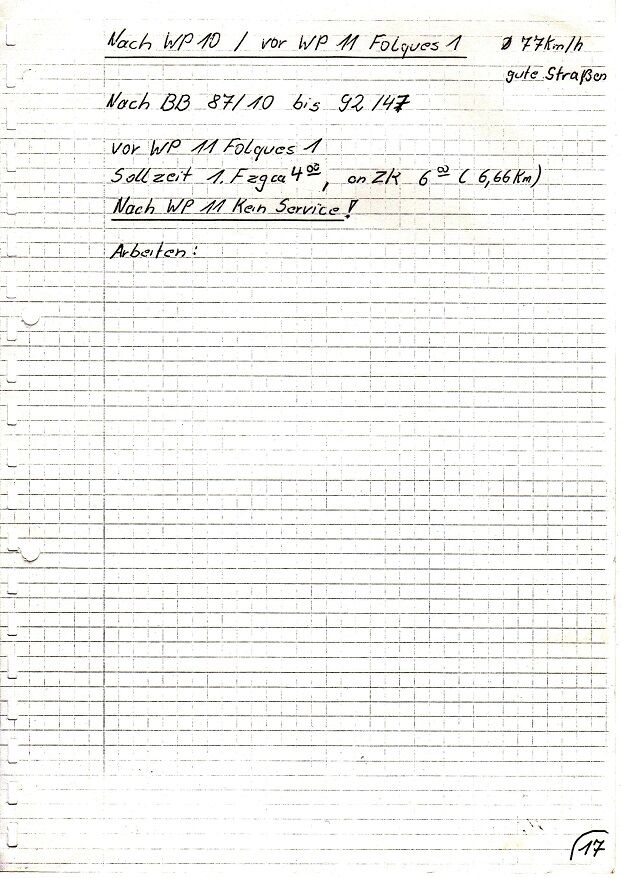 Nach WP 10 / vor WP 11 Folques 1 Ø 77Km/h
gute Straßen
Nach BB 87/10 bis 92/47
vor WP 11 Folques 1
Sollzeit 1. Fzg ca 4⁰⁰, an ZK 6⁰⁰ (6,66 Km)
Nach WP 11 Kein Service!
Arbeiten:
17